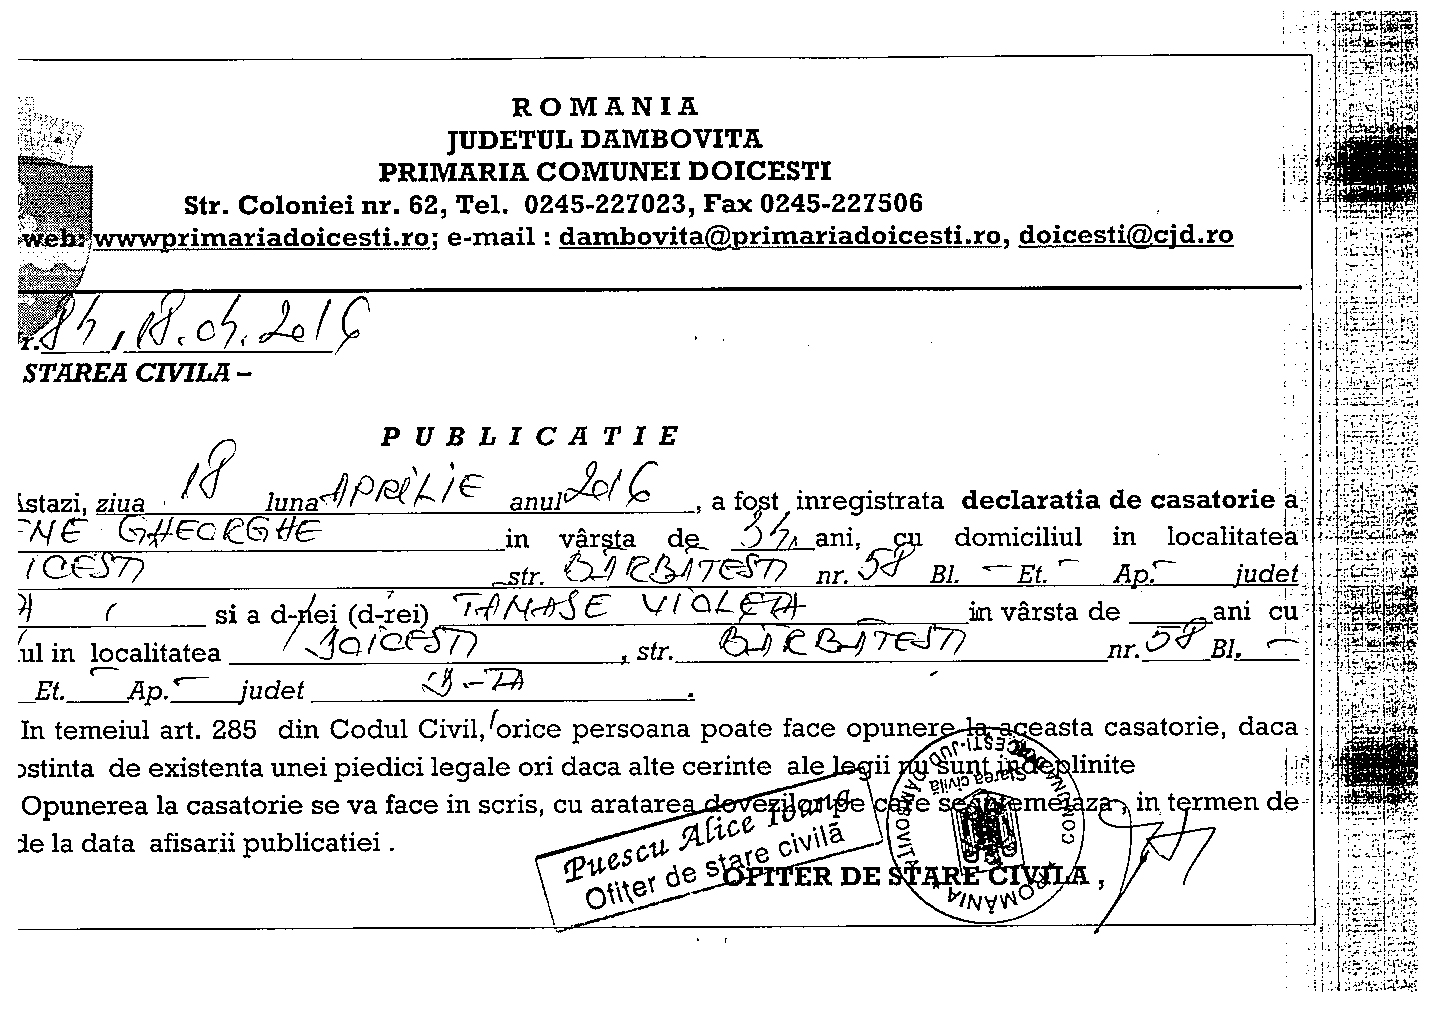 ROMANIA
JUDETUL DAMBOVITA
PRIMARIA COMUNEI DOICESTI
Str. Coloniei nr. 62, Tel. 0245-227023, Fax 0245-227506
web: wwwprimariadoicesti.ro; e-mail : dambovita@primariadoicesti.ro, doicesti@cjd.ro
r. 84 / 18.04.2016
STAREA CIVILA –
PUBLICATIE
Astazi, ziua 18 luna APRILIE anul 2016, a fost inregistrata declaratia de casatorie a
ENE GHEORGHE in vârsta de 34 ani, cu domiciliul in localitatea
ICESTI str. BĂRBĂTESTI nr. 58 Bl. – Et. – Ap. – judet
si a d-nei (d-rei) TANASE VIOLETA in vârsta de ani cu
ul in localitatea DOICESTI, str. BĂRBĂTESTI nr. 58 Bl. –
Et. – Ap. – judet D-TA.
In temeiul art. 285 din Codul Civil, orice persoana poate face opunere la aceasta casatorie, daca
ostinta de existenta unei piedici legale ori daca alte cerinte ale legii nu sunt indeplinite
Opunerea la casatorie se va face in scris, cu aratarea dovezilor pe care se intemeiaza, in termen de
de la data afisarii publicatiei .
Puescu Alice Ioana
Ofiţer de stare civilă
OFITER DE STARE CIVILA ,
ROMÂNIA
Starea civilă